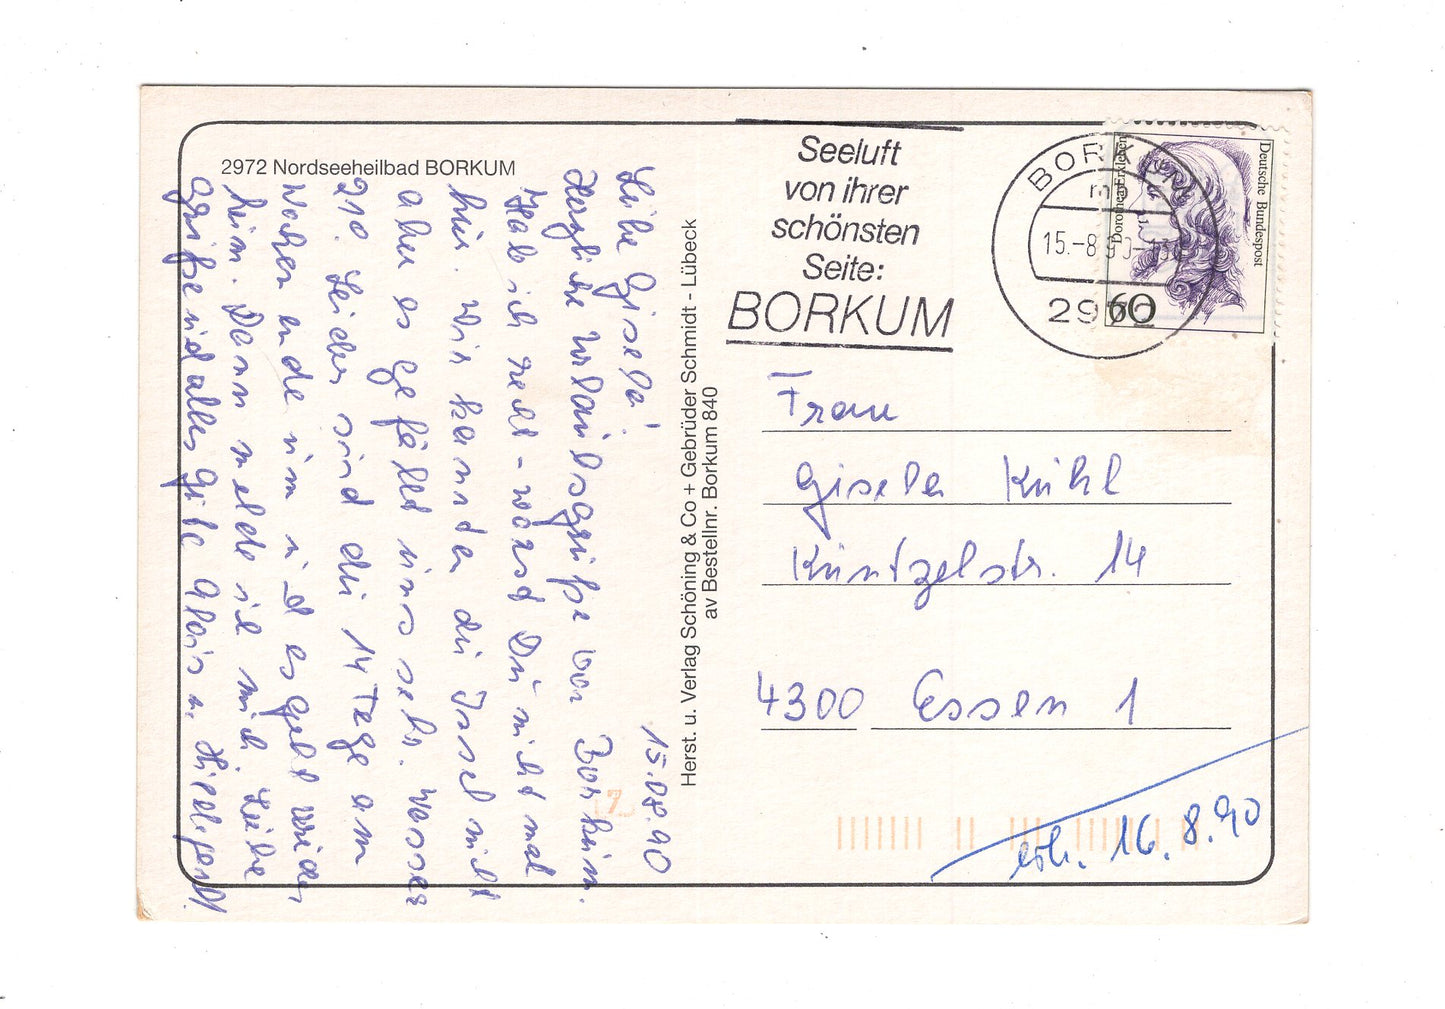 2972 Nordseeheilbad BORKUM
15.08.90
Liebe Gisela!
Herzliche Urlaubsgrüße von Borkum.
Hab ich recht - warst Du nicht mal
hier. Wir kannten die Insel nicht
aber es gefällt uns sehr. Wasser
21°. Leider sind die 14 Tage am
Wochenende um und es geht wieder
heim. Dann melde ich mich. Liebe
Grüße und alles Gute Alois u.
Herst. u. Verlag Schöning & Co + Gebrüder Schmidt - Lübeck
av Bestellnr. Borkum 840
Seeluft
von ihrer
schönsten
Seite:
BORKUM
BORKUM
15.-8.90
2972
Deutsche Bundespost
Dorothea Erxleben
60
Frau
Gisela Kühl
Küntzelstr. 14
4300 Essen 1
7
erh. 16.8.90